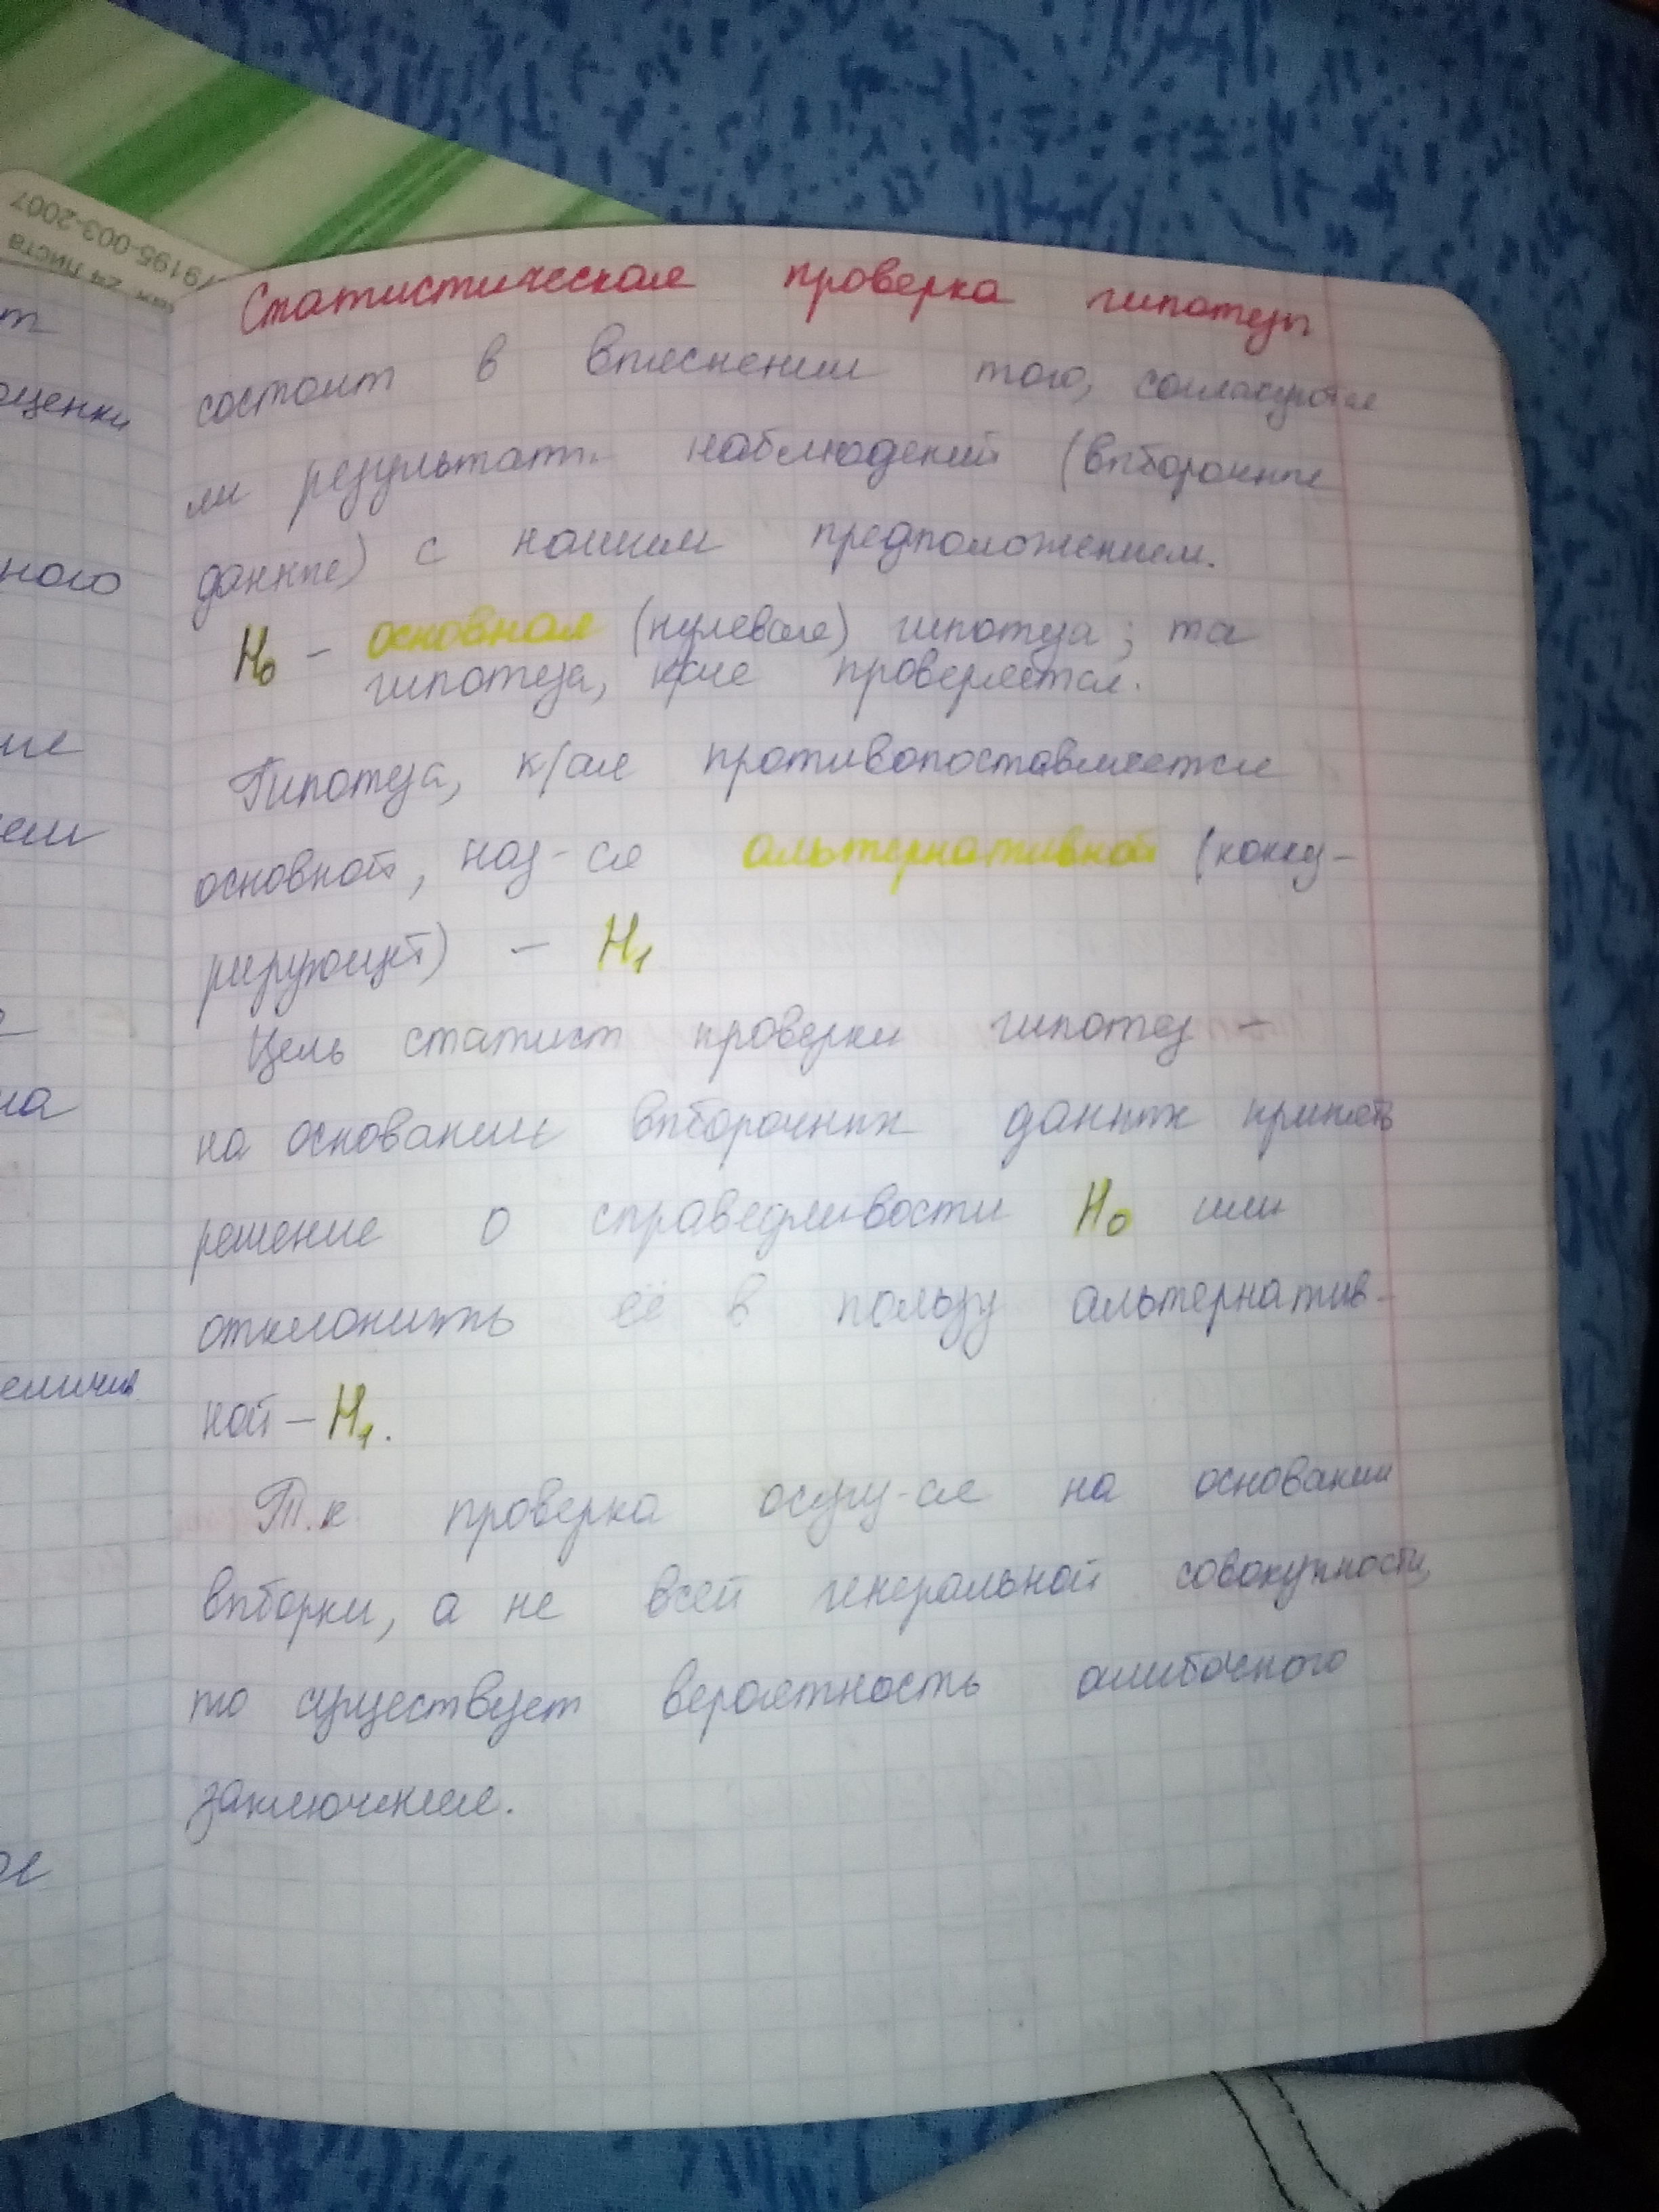 19195-003-2007
24 листа
т
оценки
ного
ие
еличин
Статистическая проверка гипотезы
состоит в выяснении того, согласуются
ли результаты наблюдений (выборочные
данные) с нашим предположением.
H₀ – основная (нулевая) гипотеза; та
гипотеза, к/ая проверяется.
Гипотеза, к/ая противопоставляется
основной, наз-ся альтернативной (конку-
рирующей) – H₁
Цель статист проверки гипотез –
на основании выборочных данных принять
решение о справедливости H₀ или
отклонить её в пользу альтернатив-
ной – H₁.
Т.к. проверка осущ-ся на основании
выборки, а не всей генеральной совокупности,
то существует вероятность ошибочного
заключения.